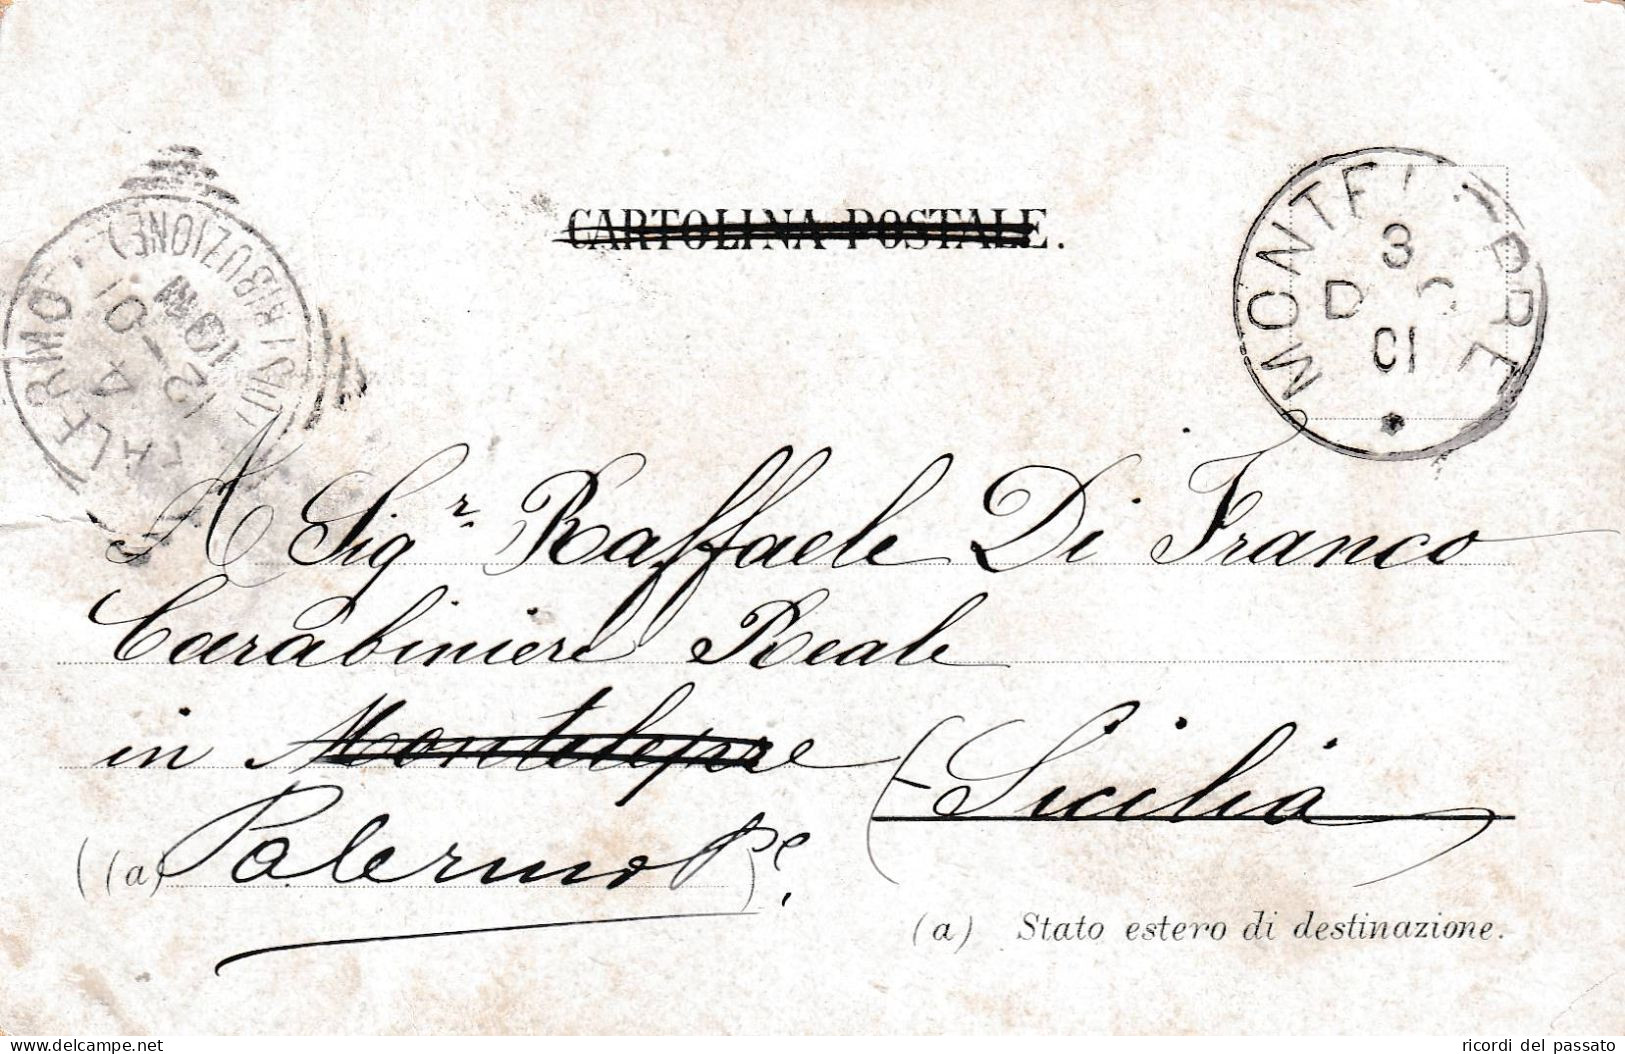 CARTOLINA POSTALE.
PALERMO
(DISTRIBUZIONE)
4
12-01
10 M
3
D C
01
A Sig.r Raffaele Di Franco
Carabiniere Reale
in Montelepre (Sicilia
(a) Palermo
(a) Stato estero di destinazione.
ricordi del passato
www.delcampe.net